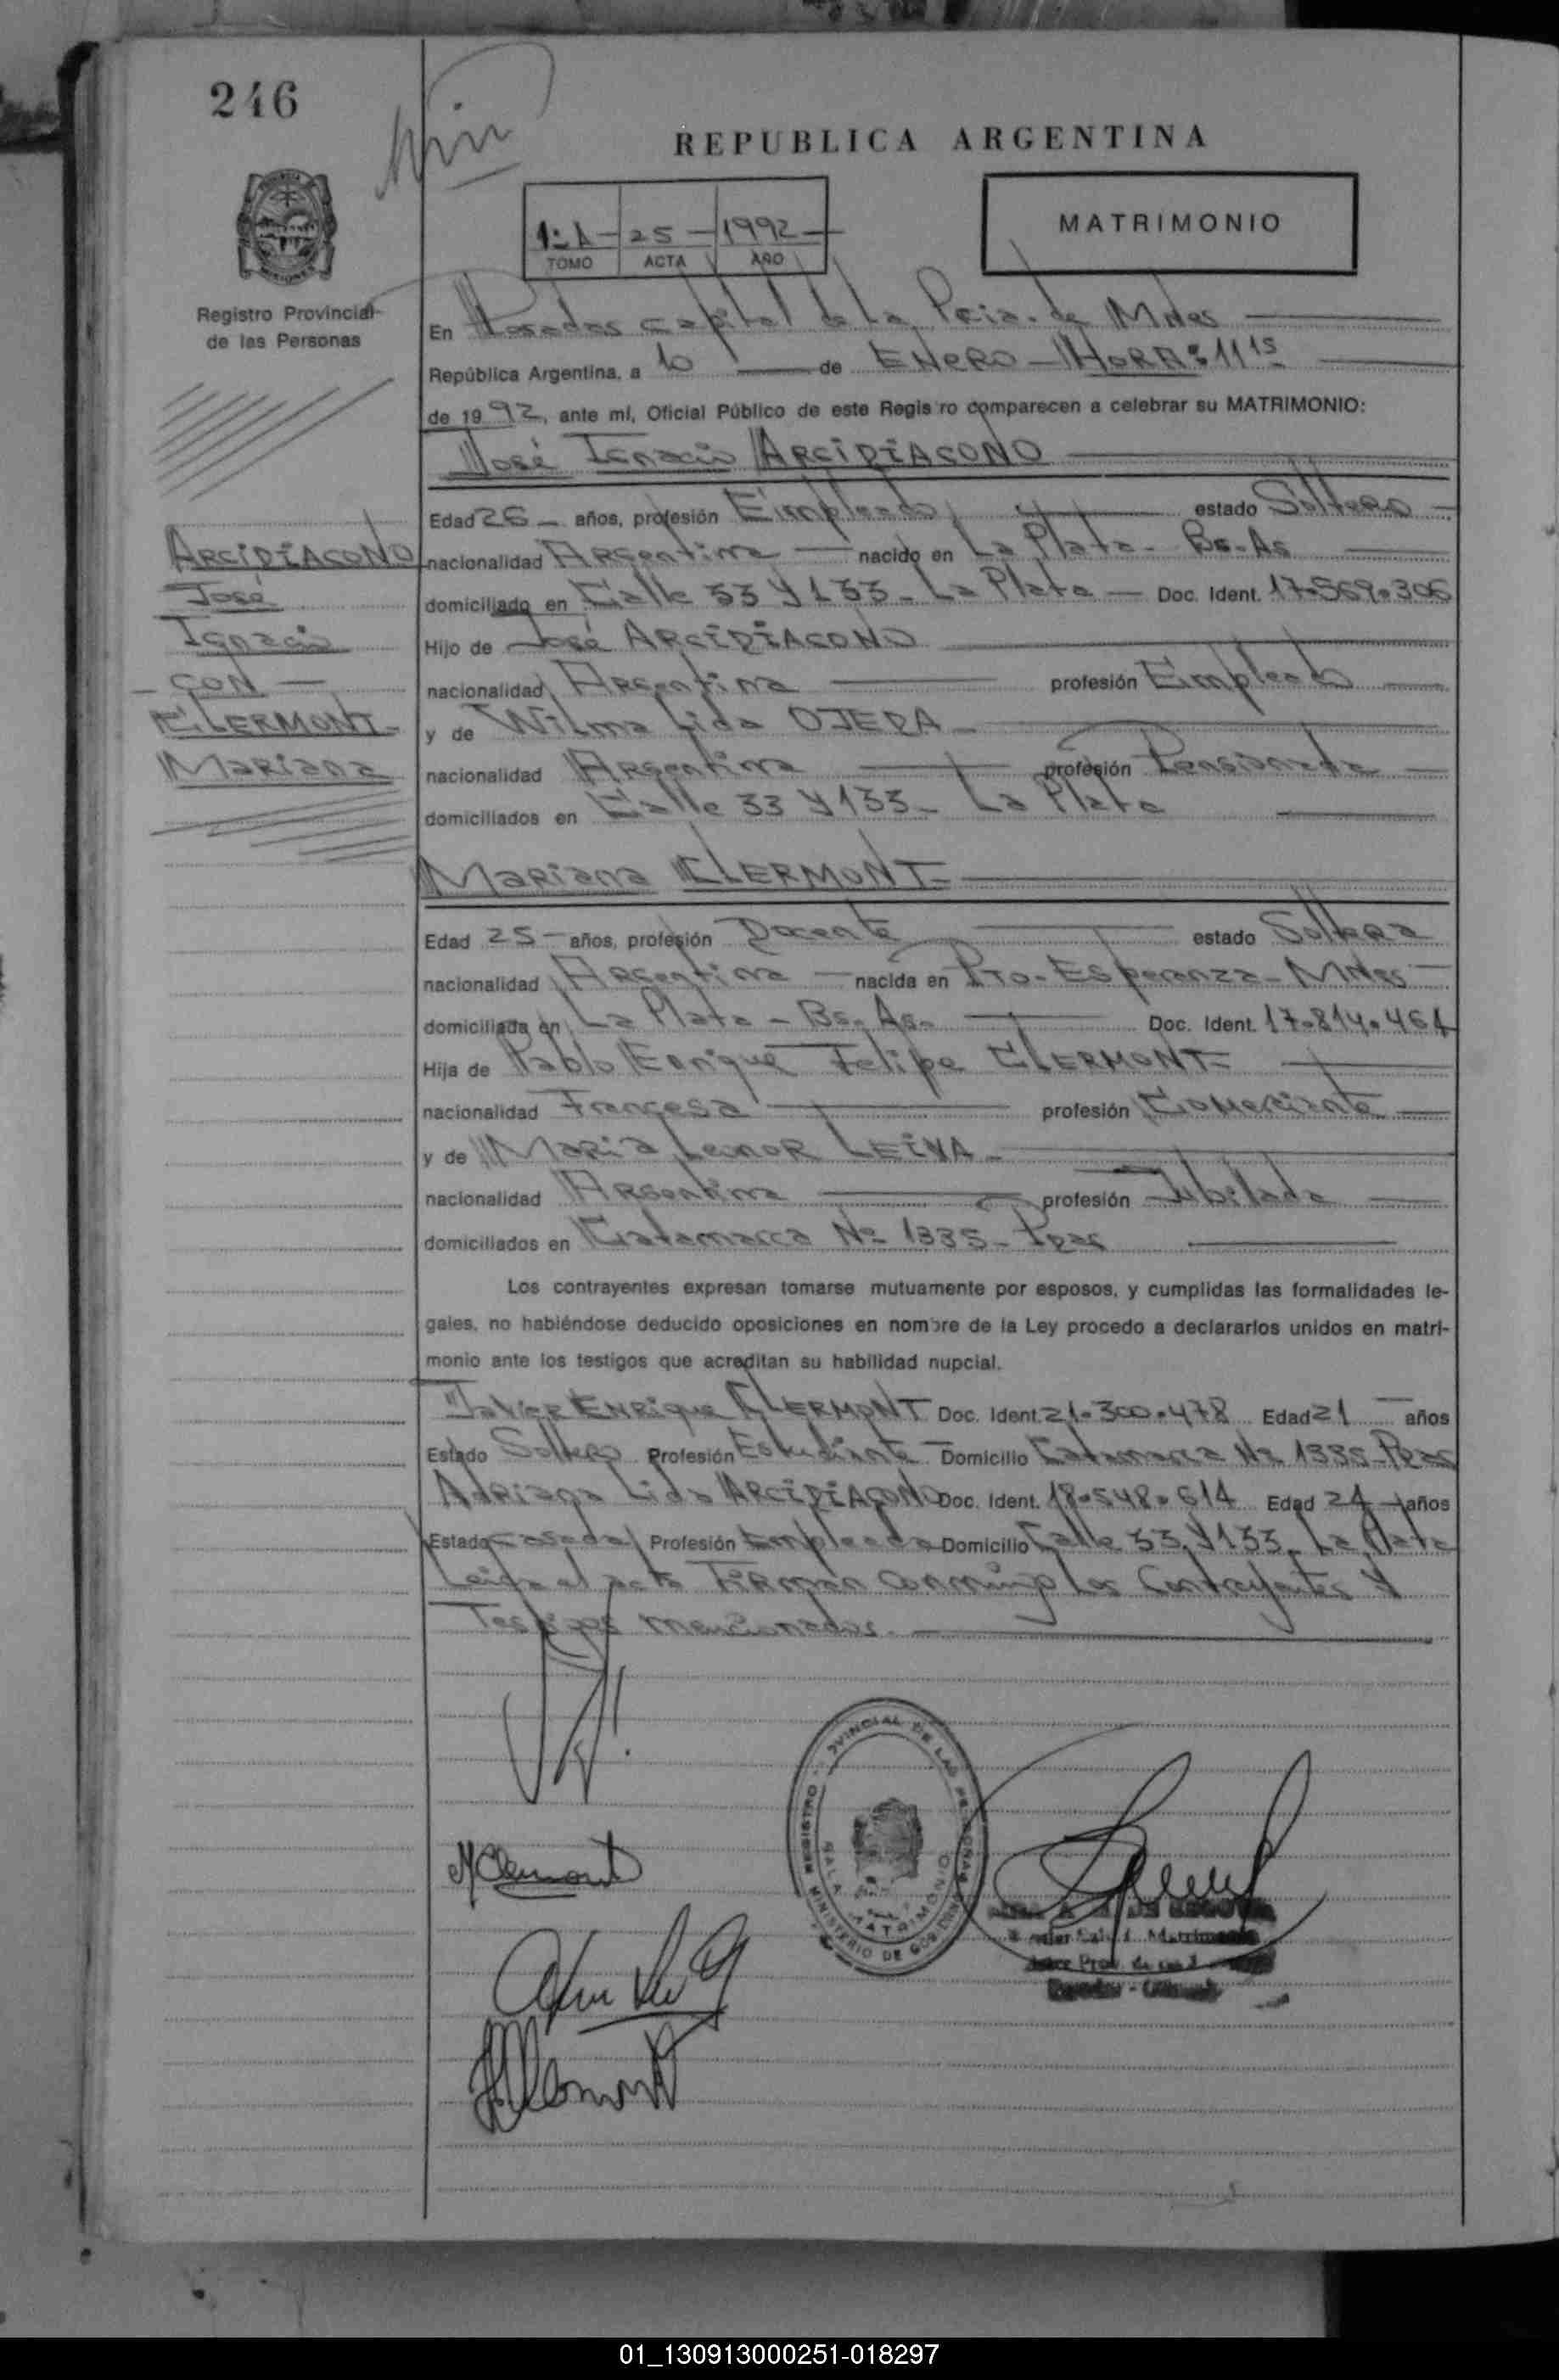 246
REPUBLICA ARGENTINA
MATRIMONIO
1-A - 25 - 1992 -
TOMO ACTA AÑO
Registro Provincial
de las Personas
En Posadas capital de la Pcia. de Mnes
República Argentina, a 10 de ENERO - HORA: 11 15
de 1992, ante mí, Oficial Público de este Registro comparecen a celebrar su MATRIMONIO:
José Ignacio ARCIDIACONO
Edad 26 - años, profesión Empleado estado Soltero
nacionalidad Argentina nacido en La Plata - Bs. As
domiciliado en Calle 33 y 133 - La Plata - Doc. Ident. 17.569.306
Hijo de José ARCIDIACONO
nacionalidad Argentina profesión Empleado
y de Wilma Lida OJEDA -
nacionalidad Argentina profesión Pensionada
domiciliados en Calle 33 y 133 - La Plata
ARCIDIACONO
José
Ignacio
- CON -
CLERMONT -
Mariana
Mariana CLERMONT -
Edad 25 - años, profesión Docente estado Soltera
nacionalidad Argentina - nacida en Pto. Esperanza - Mnes
domiciliada en La Plata - Bs. As. Doc. Ident. 17.814.464
Hija de Pablo Enrique Felipe CLERMONT -
nacionalidad Francesa profesión Comerciante
y de Maria Leonor LEIVA -
nacionalidad Argentina profesión Jubilada
domiciliados en Catamarca Nº 1335 - Pdas
Los contrayentes expresan tomarse mutuamente por esposos, y cumplidas las formalidades le-
gales, no habiéndose deducido oposiciones en nombre de la Ley procedo a declararlos unidos en matri-
monio ante los testigos que acreditan su habilidad nupcial.
Javier Enrique CLERMONT Doc. Ident. 21.300.478 Edad 21 años
Estado Soltero Profesión Estudiante Domicilio Catamarca Nº 1335 - Pdas
Adriana Lida ARCIDIACONO Doc. Ident. 18.548.614 Edad 24 años
Estado Casada Profesión Empleada Domicilio Calle 33 y 133 - La Plata
Leida el acta Firman conmigo los Contrayentes y
Testigos mencionados.
REGISTRO PROVINCIAL DE LAS PERSONAS
SALA MATRIMONIO
MINISTERIO DE GOBIERNO
MClermont
01_130913000251-018297